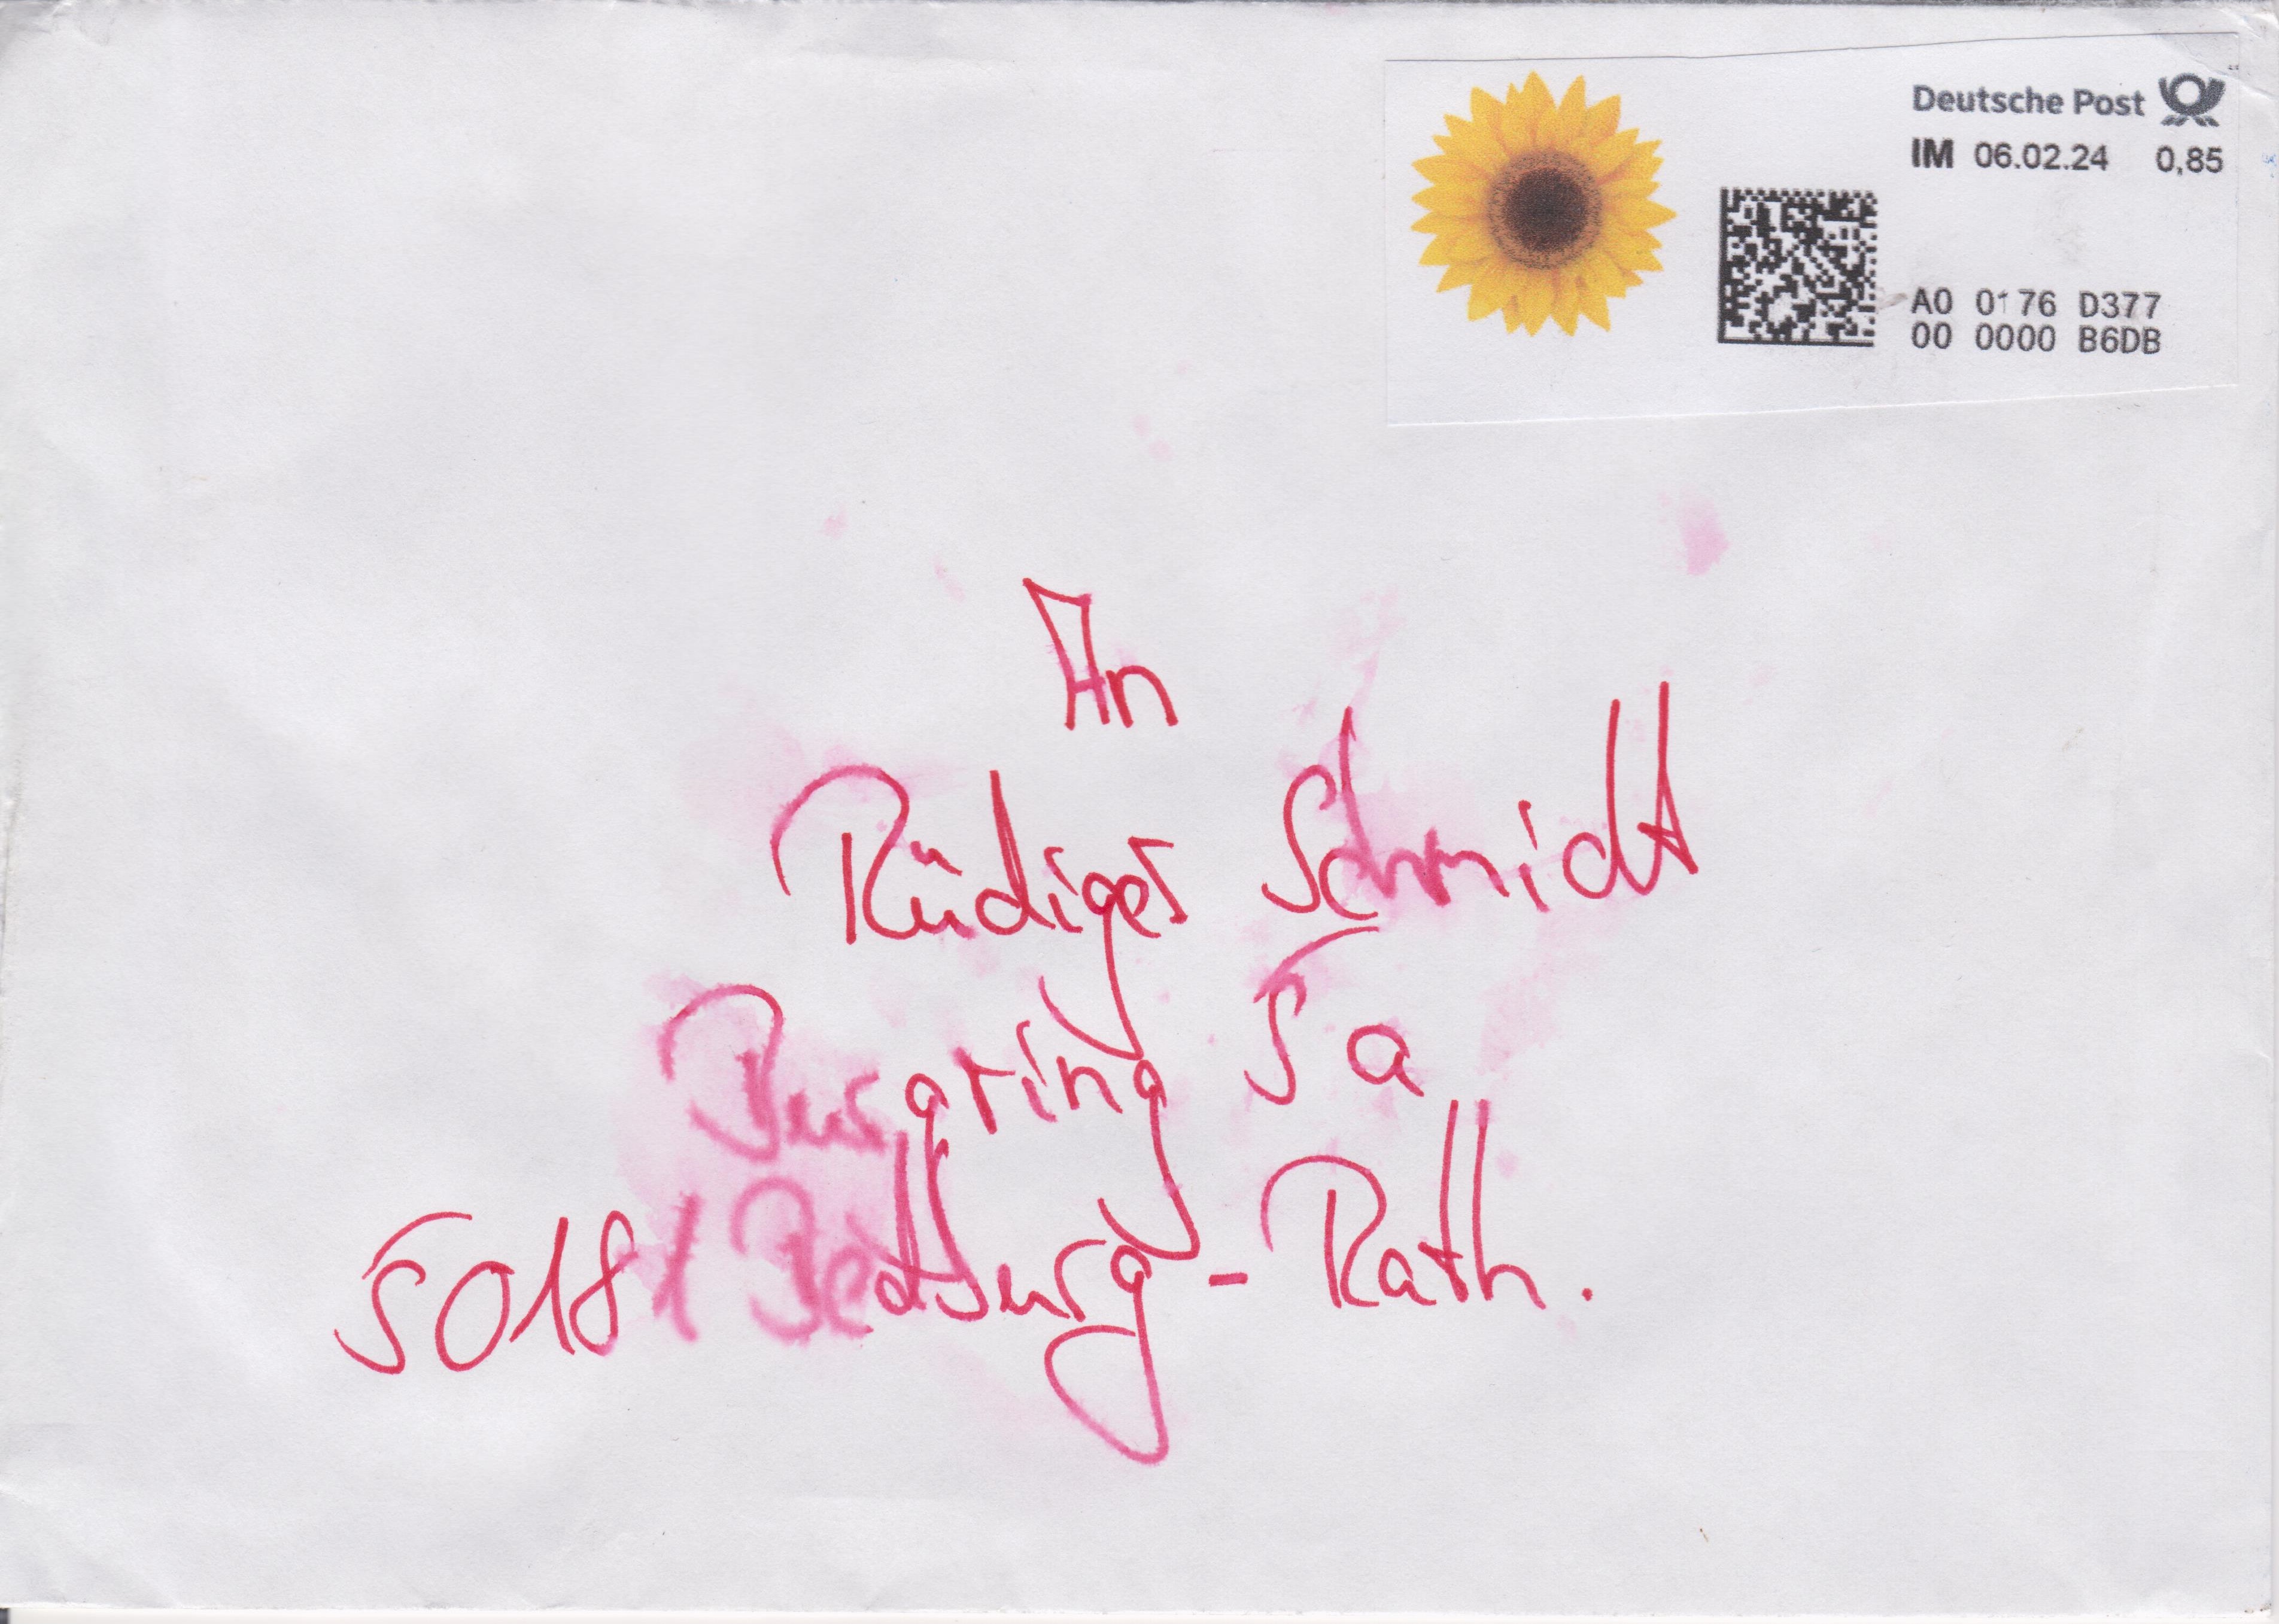 Deutsche Post
IM 06.02.24 0,85
A0 0176 D377
00 0000 B6DB
An
Rüdiger Schmidt
Burgring 5a
50181 Bedburg-Rath.